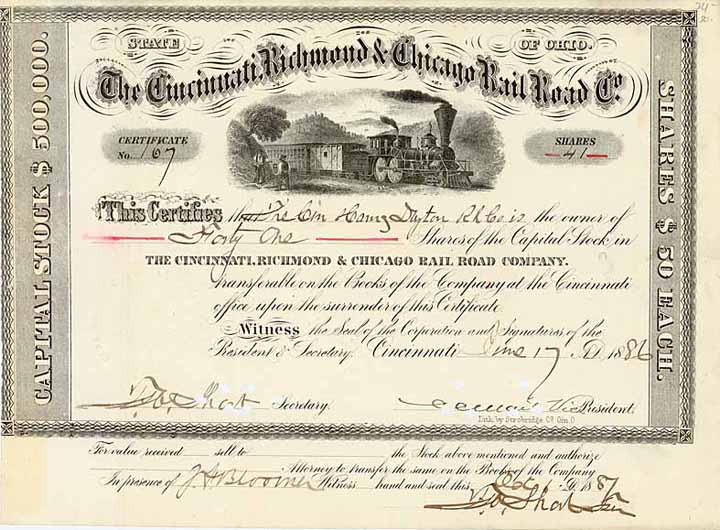 STATE OF OHIO.
The Cincinnati, Richmond & Chicago Rail Road Co.
CAPITAL STOCK $ 500,000.
SHARES $ 50 EACH.
CERTIFICATE
No. 167
SHARES
41
This Certifies that The Cin Ham & Dayton RR Co is the owner of
Forty One Shares of the Capital Stock in
THE CINCINNATI, RICHMOND & CHICAGO RAIL ROAD COMPANY.
transferable on the Books of the Company at the Cincinnati
office upon the surrender of this Certificate.
Witness the Seal of the Corporation and Signatures of the
President & Secretary. Cincinnati June 17 A.D. 1886
F. H. Short Secretary. Vice President.
Lith. by Strobridge & Co. Cin. O.
For value received sell to the Stock above mentioned and authorize
Attorney to transfer the same on the Books of the Company
In presence of Witness hand and seal this Dec 1 A.D. 1887
F. H. Short